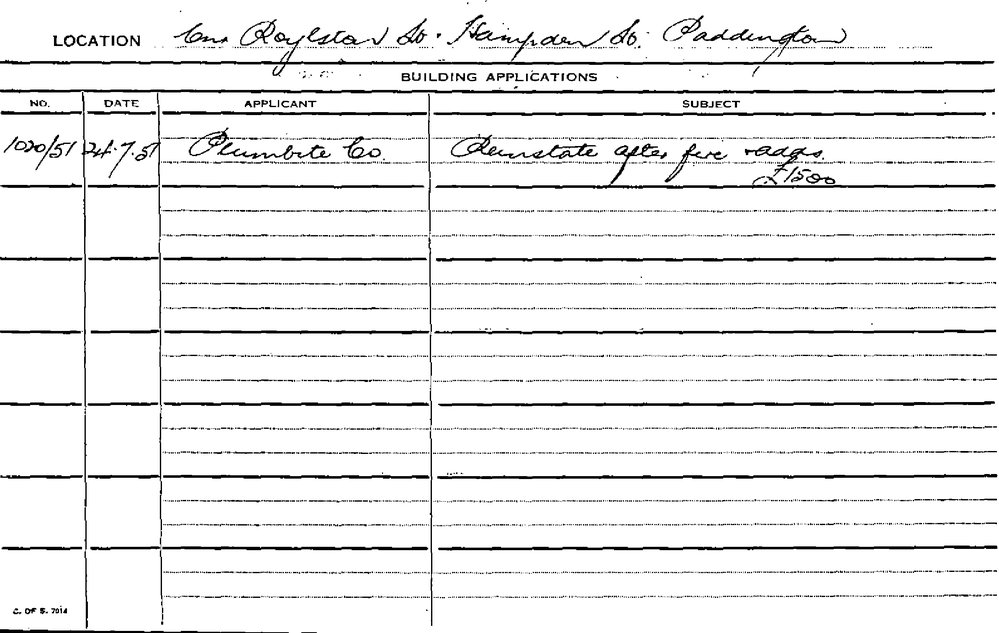 LOCATION Cnr. Roylston St. Hampden St. Paddington
BUILDING APPLICATIONS
NO. DATE APPLICANT SUBJECT
1020/51 24.7.51 Plumbite Co. Reinstate after fire & adds.
£1500
C. OF S. 7014